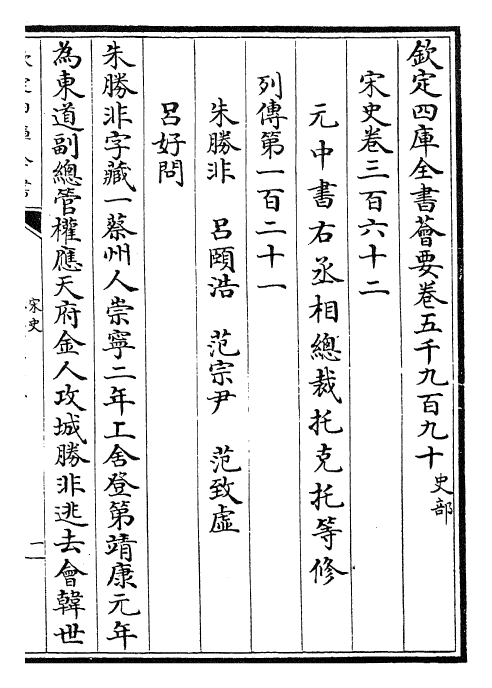 欽定四庫全書薈要卷五千九百九十 史部
宋史卷三百六十二
元中書右丞相總裁托克托等修
列傳第一百二十一
朱勝非 呂頤浩 范宗尹 范致虛
呂好問
朱勝非字藏一蔡州人崇寧二年上舍登第靖康元年
為東道副總管權應天府金人攻城勝非逃去會韓世
宋史